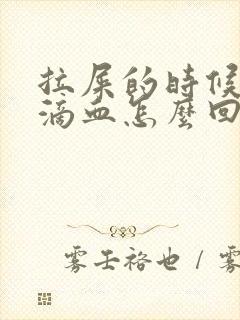 拉屎的时候
滴血怎麼回
雾壬裕也 / 雾